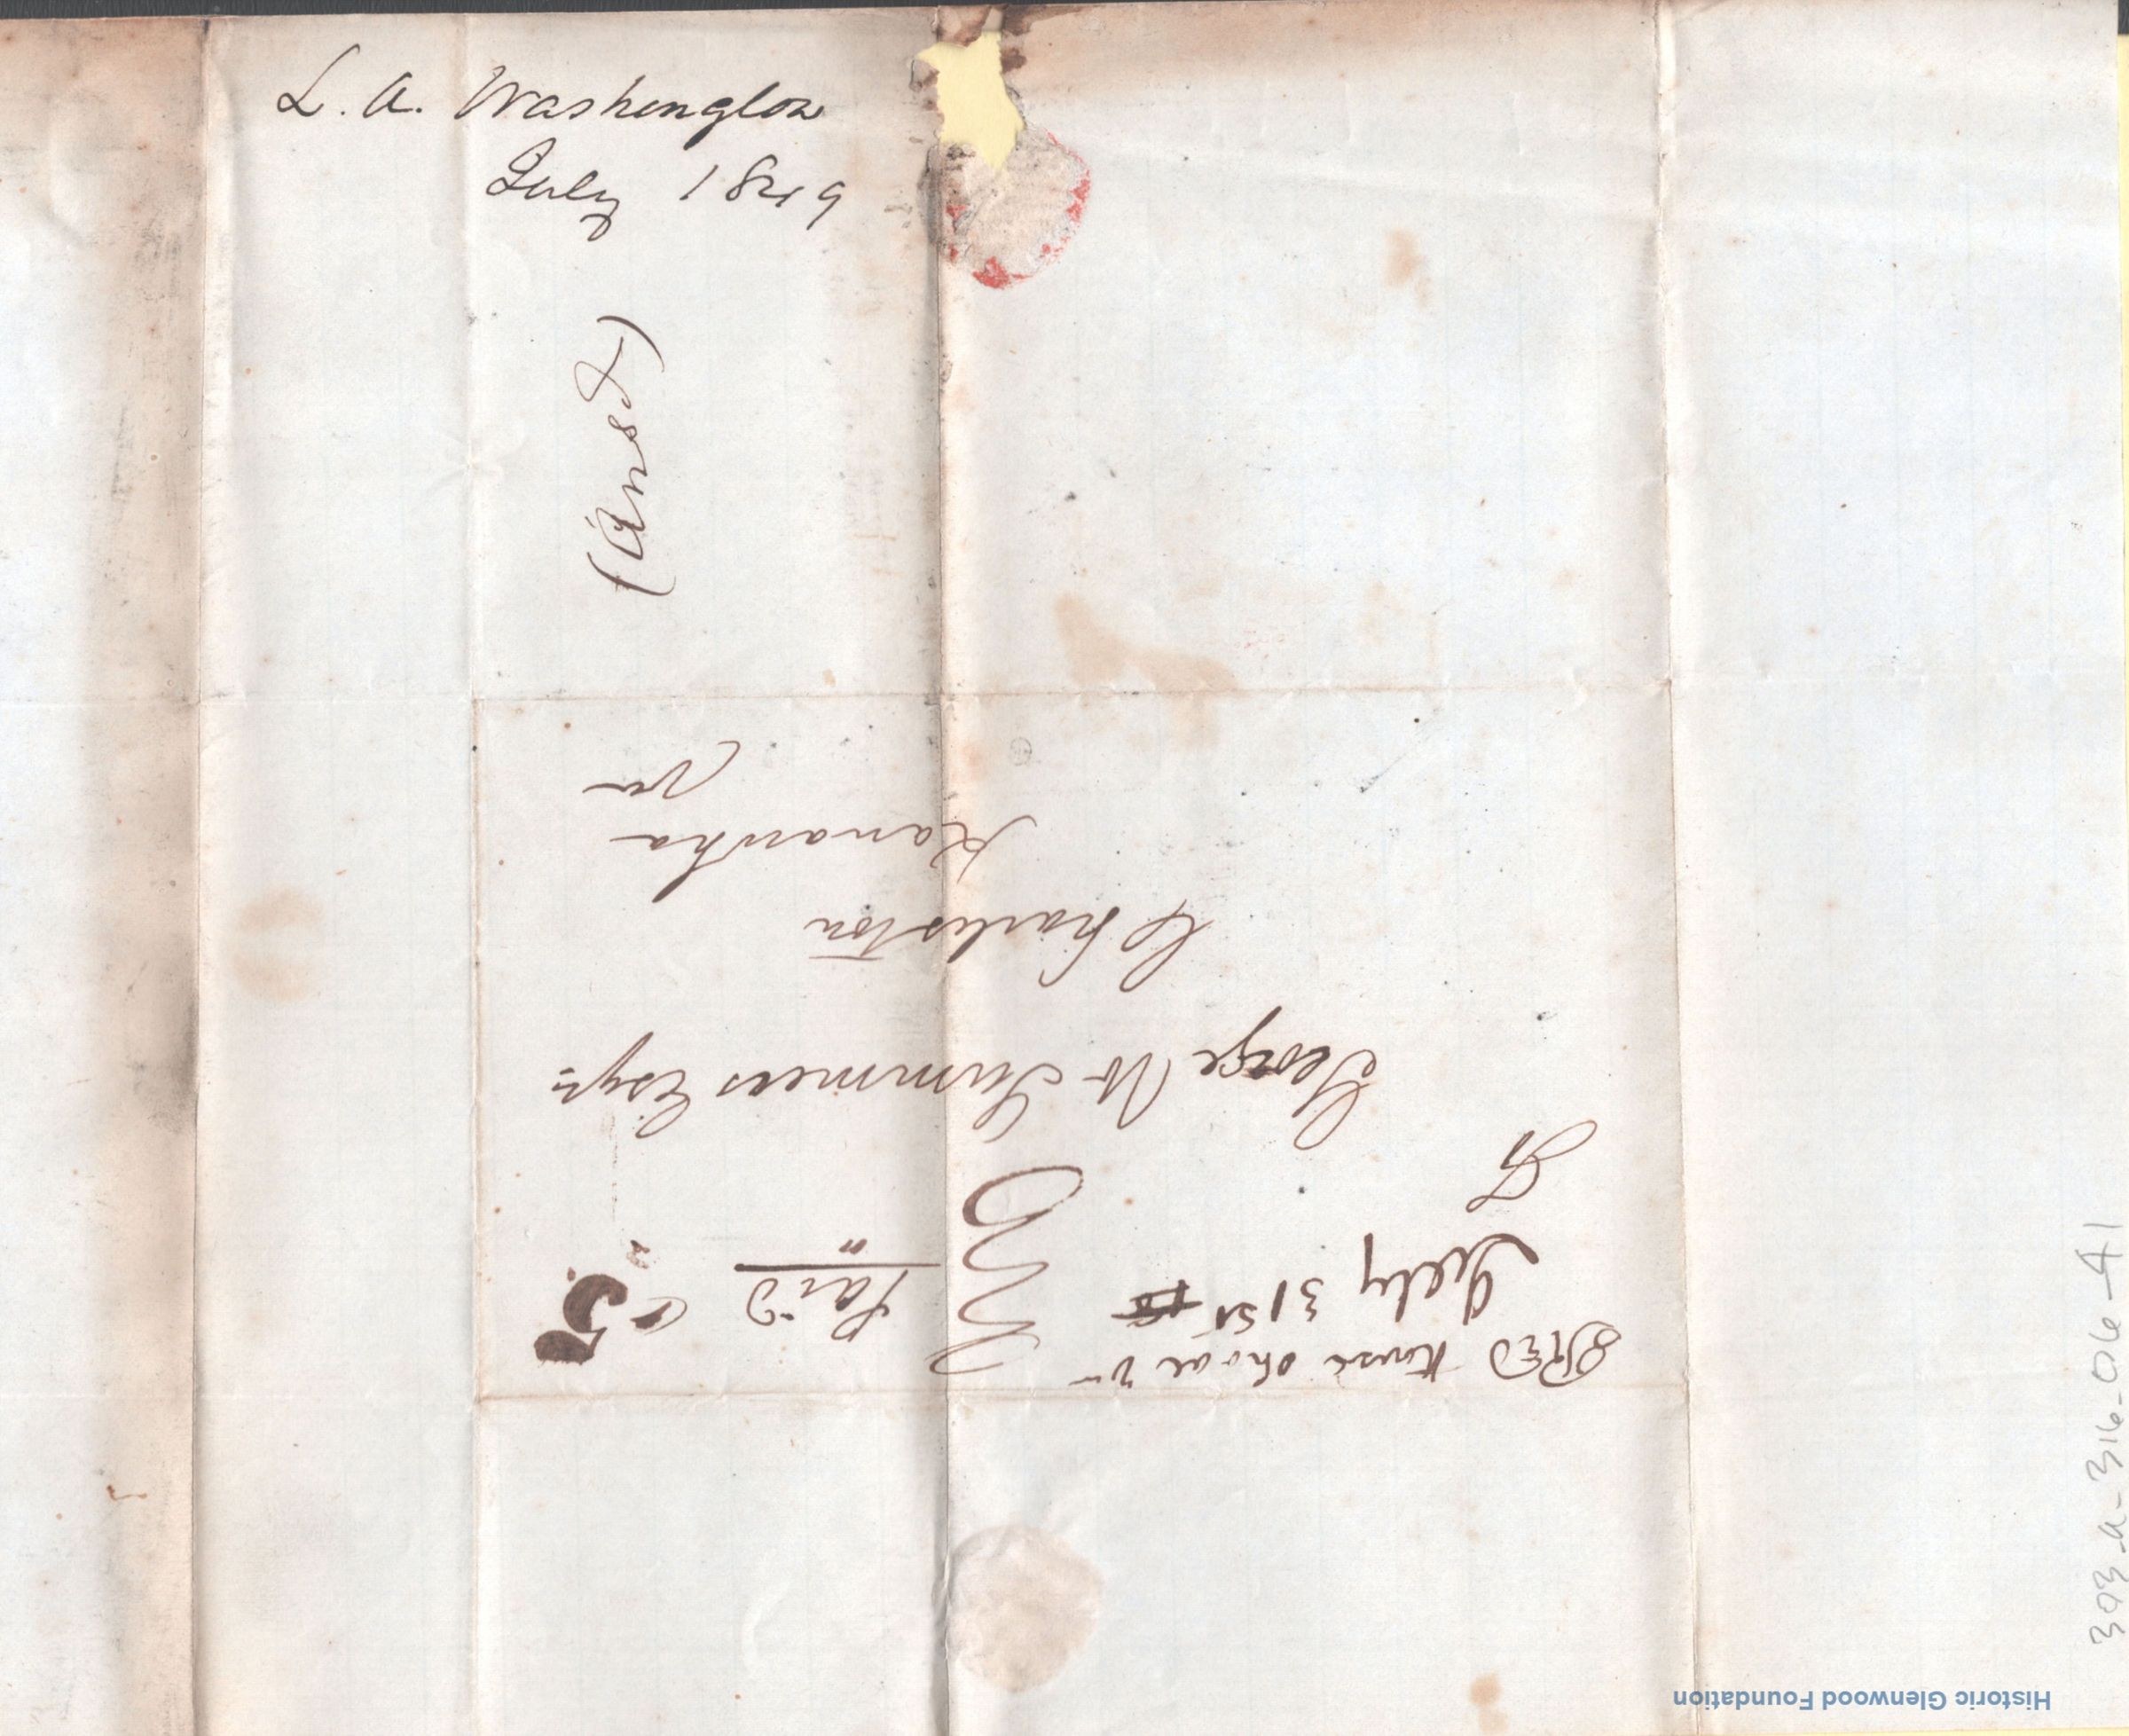 L. A. Washington
July 1849
(Ansd)
RED House Shoal Va
July 31st
Paid 5
George W Summers Esqr
Charleston
Kanawha
Va
393-a-316-06-41
Historic Glenwood Foundation